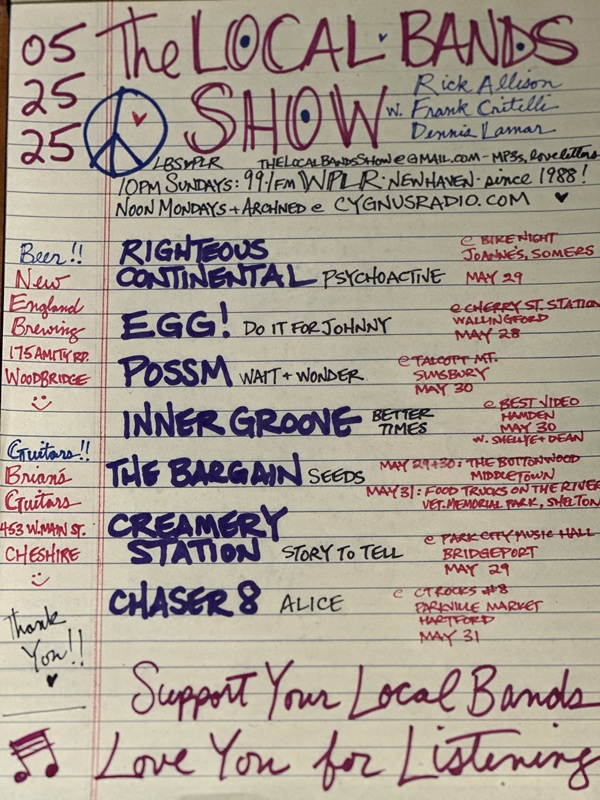 05
25
25
The LOCAL BANDS
SHOW
w. Rick Allison
Frank Critelli
Dennis Lamar
LBSWPLR THELOCALBANDSSHOW@GMAIL.COM - MP3s, love letters
10PM SUNDAYS: 99.1 FM WPLR · NEW HAVEN · since 1988!
NOON MONDAYS + ARCHIVED @ CYGNUSRADIO.COM ♥
Beer!!
New
England
Brewing
175 AMITY RD.
WOODBRIDGE
Guitars!!
Brian's
Guitars
453 W. MAIN ST.
CHESHIRE
Thank
You!!
RIGHTEOUS
CONTINENTAL PSYCHOACTIVE
@ BIKE NIGHT
JOANNE'S, SOMERS
MAY 29
EGG! DO IT FOR JOHNNY
@ CHERRY ST. STATION
WALLINGFORD
MAY 28
POSSM WAIT + WONDER
@ TALCOTT MT.
SIMSBURY
MAY 30
INNER GROOVE BETTER
TIMES
@ BEST VIDEO
HAMDEN
MAY 30
W. SHELLYE + DEAN
THE BARGAIN SEEDS
MAY 29+30: THE BUTTONWOOD
MIDDLETOWN
MAY 31: FOOD TRUCKS ON THE RIVER
VET. MEMORIAL PARK, SHELTON
CREAMERY
STATION STORY TO TELL
@ PARK CITY MUSIC HALL
BRIDGEPORT
MAY 29
CHASER 8 ALICE
@ CT ROCKS #8
PARKVILLE MARKET
HARTFORD
MAY 31
Support Your Local Bands
Love You for Listening